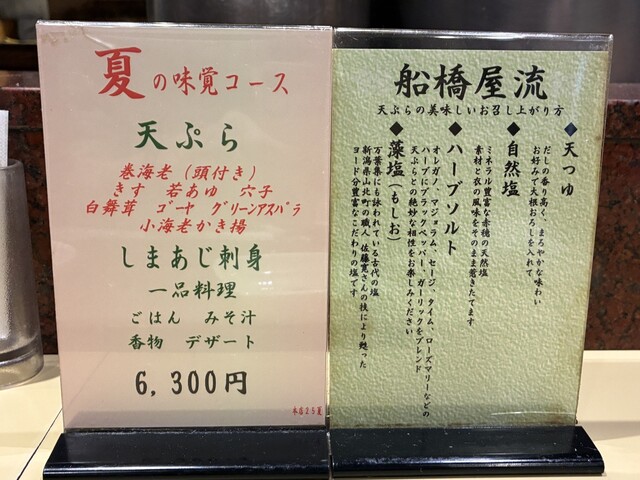 夏の味覚コース
天ぷら
巻海老（頭付き）
きす　若あゆ　穴子
白舞茸　ゴーヤ　グリーンアスパラ
小海老かき揚
しまあじ刺身
一品料理
ごはん　みそ汁
香物　デザート
6,300円
本店25夏
船橋屋流
天ぷらの美味しいお召し上がり方
◆天つゆ
だしの香り高く、まろやかな味わい
お好みで大根おろしを入れて
◆自然塩
ミネラル豊富な赤穂の天然塩
素材と衣の風味をそのまま惹きたてます
◆ハーブソルト
オレガノ、マジョラム、セージ、タイム、ローズマリーなどの
ハーブにブラックペッパー、ガーリックをブレンド
天ぷらとの絶妙な相性をお楽しみください
◆藻塩（もしお）
万葉集にも詠われている古代の塩
新潟県山北町の職人 佐藤寛さんの技により甦った
ヨード分豊富なこだわりの塩です